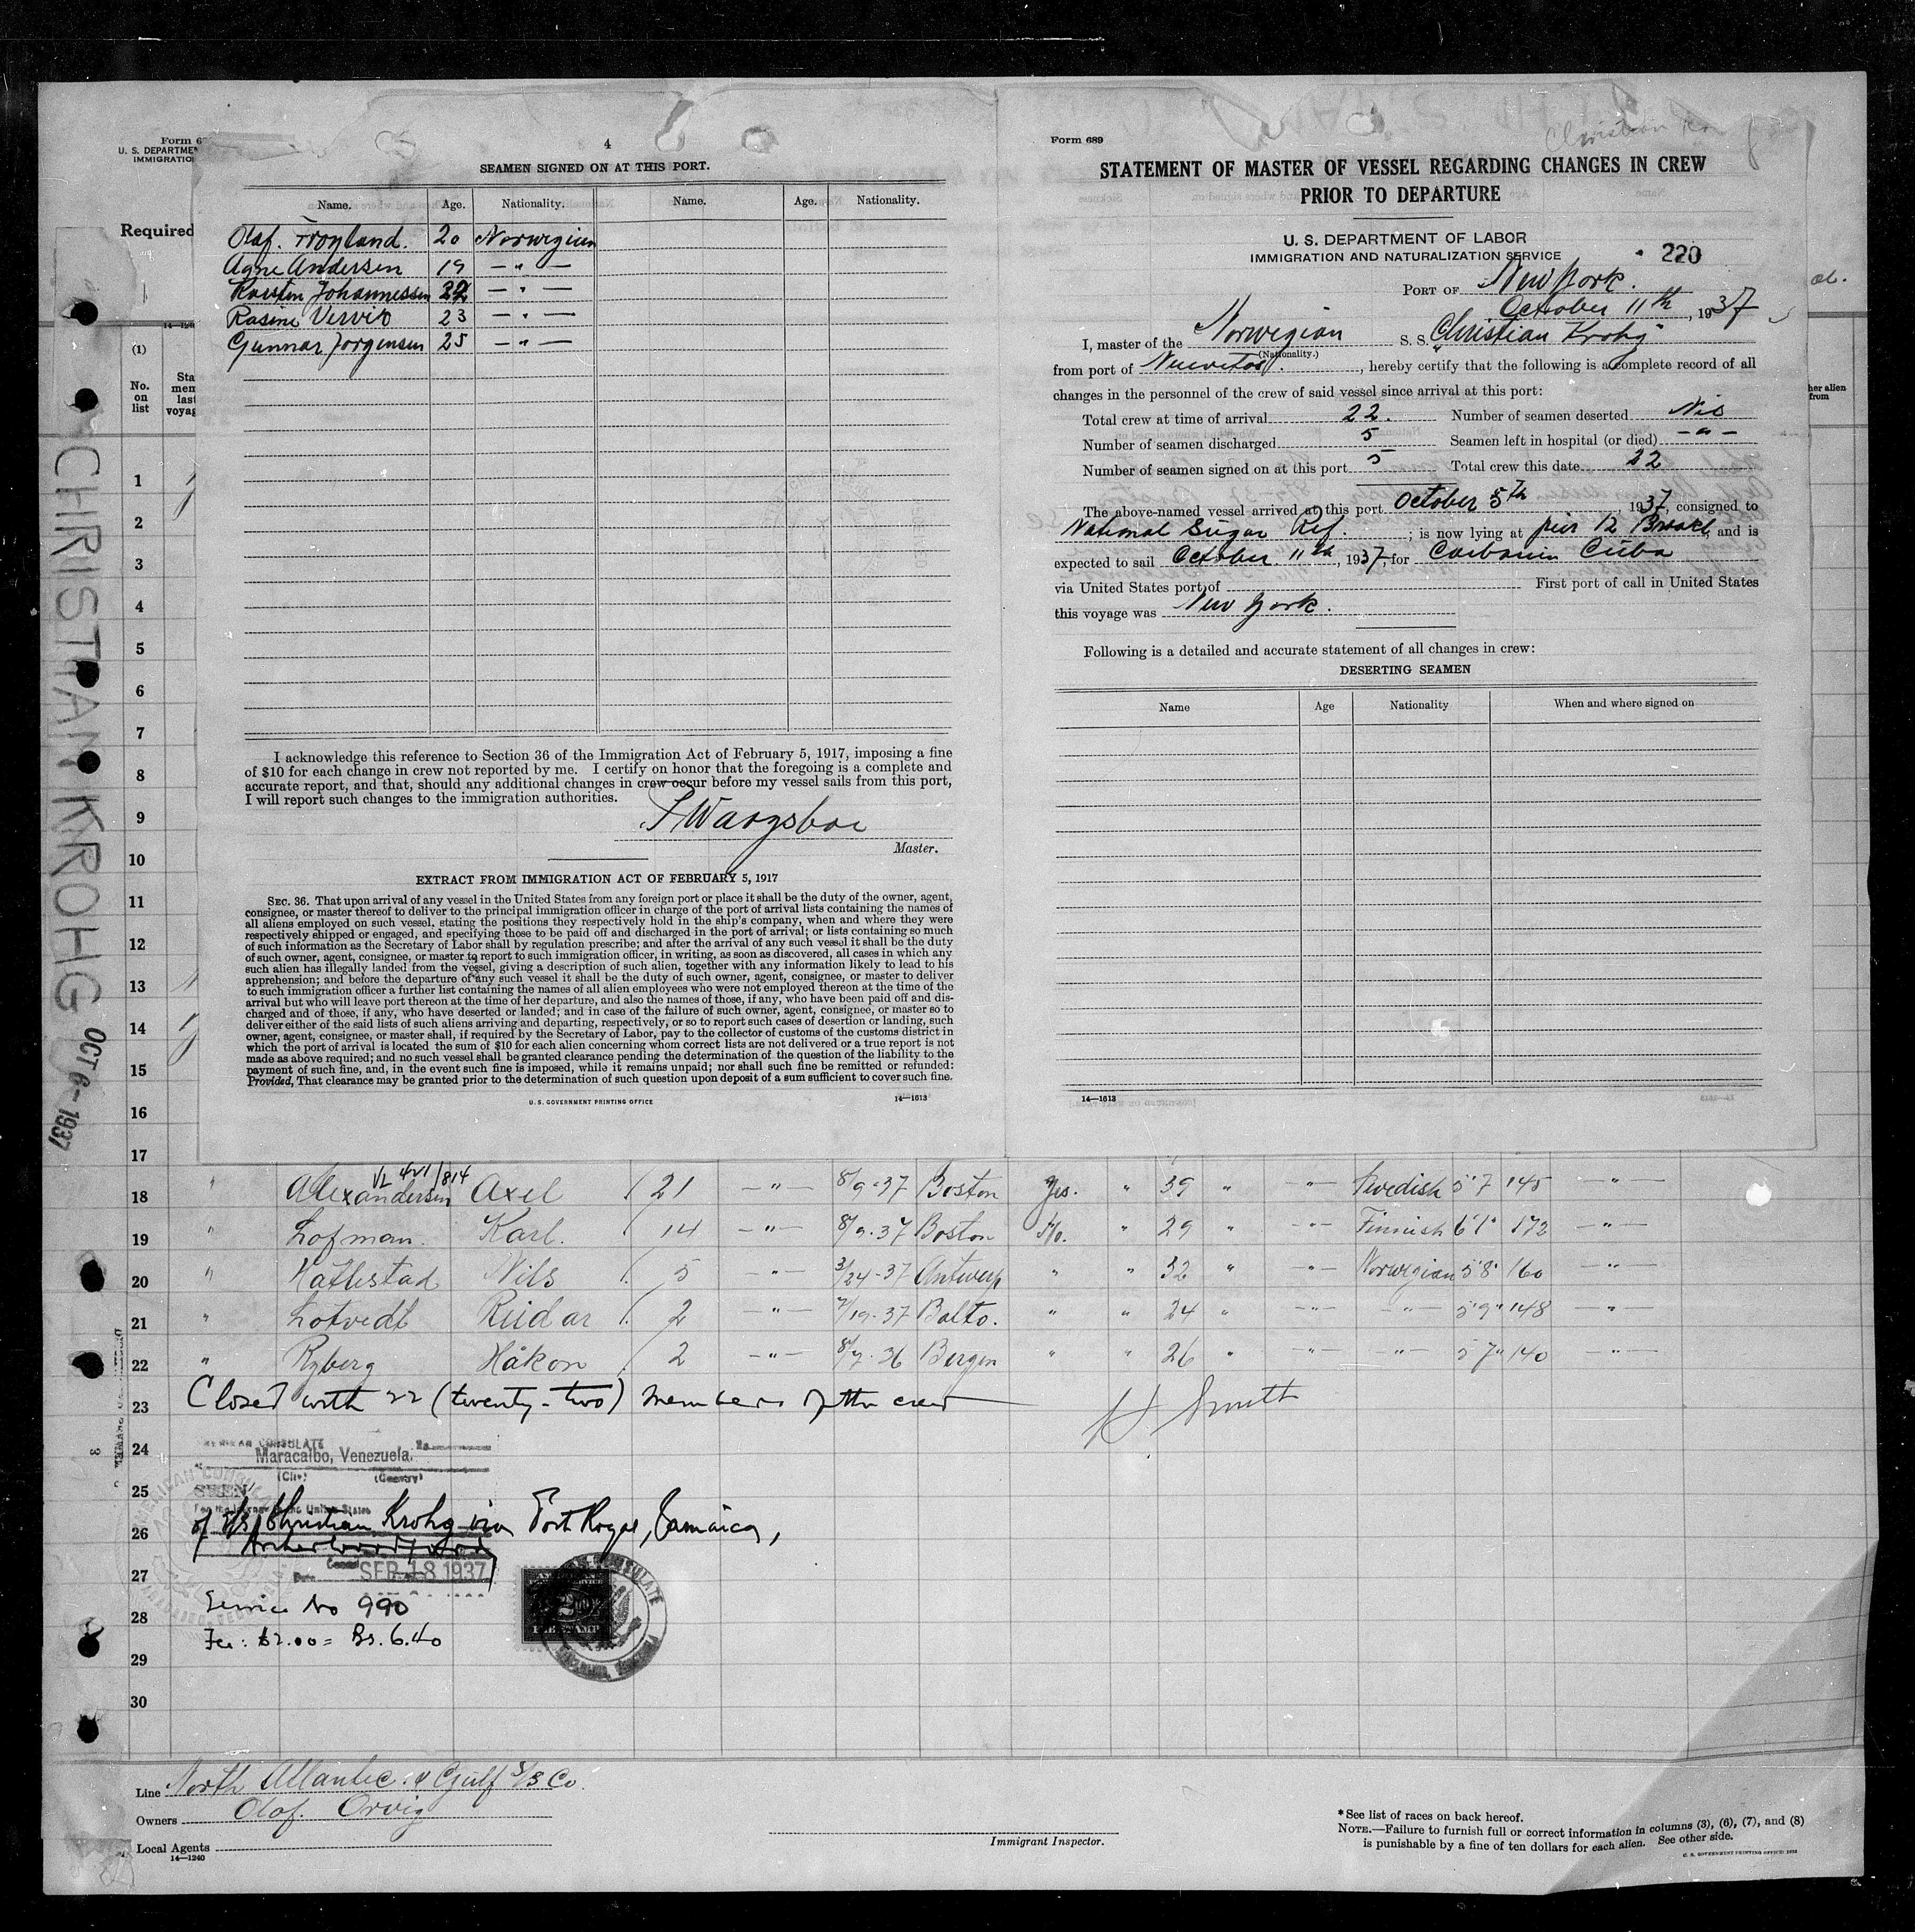 Form 6
U. S. DEPARTMEN
IMMIGRATIO
Required
14—1240
(1)
No.
on
list
Sta
men
last
voyag
CHRISTIAN KROHG
OCT 6 - 1937
1
2
3
4
5
6
7
8
9
10
11
12
13
14
15
16
17
4
SEAMEN SIGNED ON AT THIS PORT.
Name. Age. Nationality. Name. Age. Nationality.
Olaf. Froyland. 20 Norwegian
Agne Andersen 19 — " —
Karsten Johannessen 22 — " —
Rasine 23 — " —
Gunnar Jorgensen 25 — " —
I acknowledge this reference to Section 36 of the Immigration Act of February 5, 1917, imposing a fine
of $10 for each change in crew not reported by me. I certify on honor that the foregoing is a complete and
accurate report, and that, should any additional changes in crew occur before my vessel sails from this port,
I will report such changes to the immigration authorities.
Master.
EXTRACT FROM IMMIGRATION ACT OF FEBRUARY 5, 1917
SEC. 36. That upon arrival of any vessel in the United States from any foreign port or place it shall be the duty of the owner, agent,
consignee, or master thereof to deliver to the principal immigration officer in charge of the port of arrival lists containing the names of
all aliens employed on such vessel, stating the positions they respectively hold in the ship's company, when and where they were
respectively shipped or engaged, and specifying those to be paid off and discharged in the port of arrival; or lists containing so much
of such information as the Secretary of Labor shall by regulation prescribe; and after the arrival of any such vessel it shall be the duty
of such owner, agent, consignee, or master to report to such immigration officer, in writing, as soon as discovered, all cases in which any
such alien has illegally landed from the vessel, giving a description of such alien, together with any information likely to lead to his
apprehension; and before the departure of any such vessel it shall be the duty of such owner, agent, consignee, or master to deliver
to such immigration officer a further list containing the names of all alien employees who were not employed thereon at the time of the
arrival but who will leave port thereon at the time of her departure, and also the names of those, if any, who have been paid off and dis-
charged and of those, if any, who have deserted or landed; and in case of the failure of such owner, agent, consignee, or master so to
deliver either of the said lists of such aliens arriving and departing, respectively, or so to report such cases of desertion or landing, such
owner, agent, consignee, or master shall, if required by the Secretary of Labor, pay to the collector of customs of the customs district in
which the port of arrival is located the sum of $10 for each alien concerning whom correct lists are not delivered or a true report is not
made as above required; and no such vessel shall be granted clearance pending the determination of the question of the liability to the
payment of such fine, and, in the event such fine is imposed, while it remains unpaid; nor shall such fine be remitted or refunded:
Provided, That clearance may be granted prior to the determination of such question upon deposit of a sum sufficient to cover such fine.
U. S. GOVERNMENT PRINTING OFFICE 14—1613
Form 689
STATEMENT OF MASTER OF VESSEL REGARDING CHANGES IN CREW
PRIOR TO DEPARTURE
U. S. DEPARTMENT OF LABOR
IMMIGRATION AND NATURALIZATION SERVICE
220
PORT OF New York.
October 11th, 1937
I, master of the Norwegian S. S. "Christian Krohg"
(Nationality.)
from port of Nuevitas., hereby certify that the following is a complete record of all
changes in the personnel of the crew of said vessel since arrival at this port:
Total crew at time of arrival 22. Number of seamen deserted Nil
Number of seamen discharged 5 Seamen left in hospital (or died) — " —
Number of seamen signed on at this port 5 Total crew this date 22
The above-named vessel arrived at this port October 5th, 1937, consigned to
National Sugar Ref.; is now lying at pier 12 and is
expected to sail October 11th, 1937, for Cuba
via United States port of First port of call in United States
this voyage was New York.
Following is a detailed and accurate statement of all changes in crew:
DESERTING SEAMEN
Name Age Nationality When and where signed on
14—1613
her alien
from
18 " Alexandersen Axel 21 — " — 8/9-37 Boston Yes. " 39 " — " — Swedish 5'7 145 — " —
19 " Lofman. Karl. 14 — " — 8/9-37 Boston No. " 29 " — " — Finnish 6'1" 172 — " —
20 " Nils 5 — " — 3/24-37 Antwerp " " 32 " — " — Norwegian 5'8" 160 — " —
21 " Lotvedt Reidar 2 — " — 7/19-37 Balto. " " 24 " — " — — " — 5'9" 148 — " —
22 " Ryberg Håkon 2 — " — 8/7-36 Bergen " " 26 " — " — — " — 5'7" 140 — " —
23 Closed with 22 (twenty-two) members of the crew Smith
24
AMERICAN CONSULATE
Maracaibo, Venezuela.
(City) (Country)
25
SEEN
For the journey to the United States
26
of S/S Christian Krohg via Port Royal, Jamaica,
27
Consul
Date SEP 18 1937
28
Service No 990
Fee: $2.00 = Bs. 6.40
FEE STAMP
29
30
Line North Atlantic & Gulf S/S Co.
Owners Olaf. Orvig
Local Agents
14—1240
Immigrant Inspector.
*See list of races on back hereof.
NOTE.—Failure to furnish full or correct information in columns (3), (6), (7), and (8)
is punishable by a fine of ten dollars for each alien. See other side.
U. S. GOVERNMENT PRINTING OFFICE: 1932